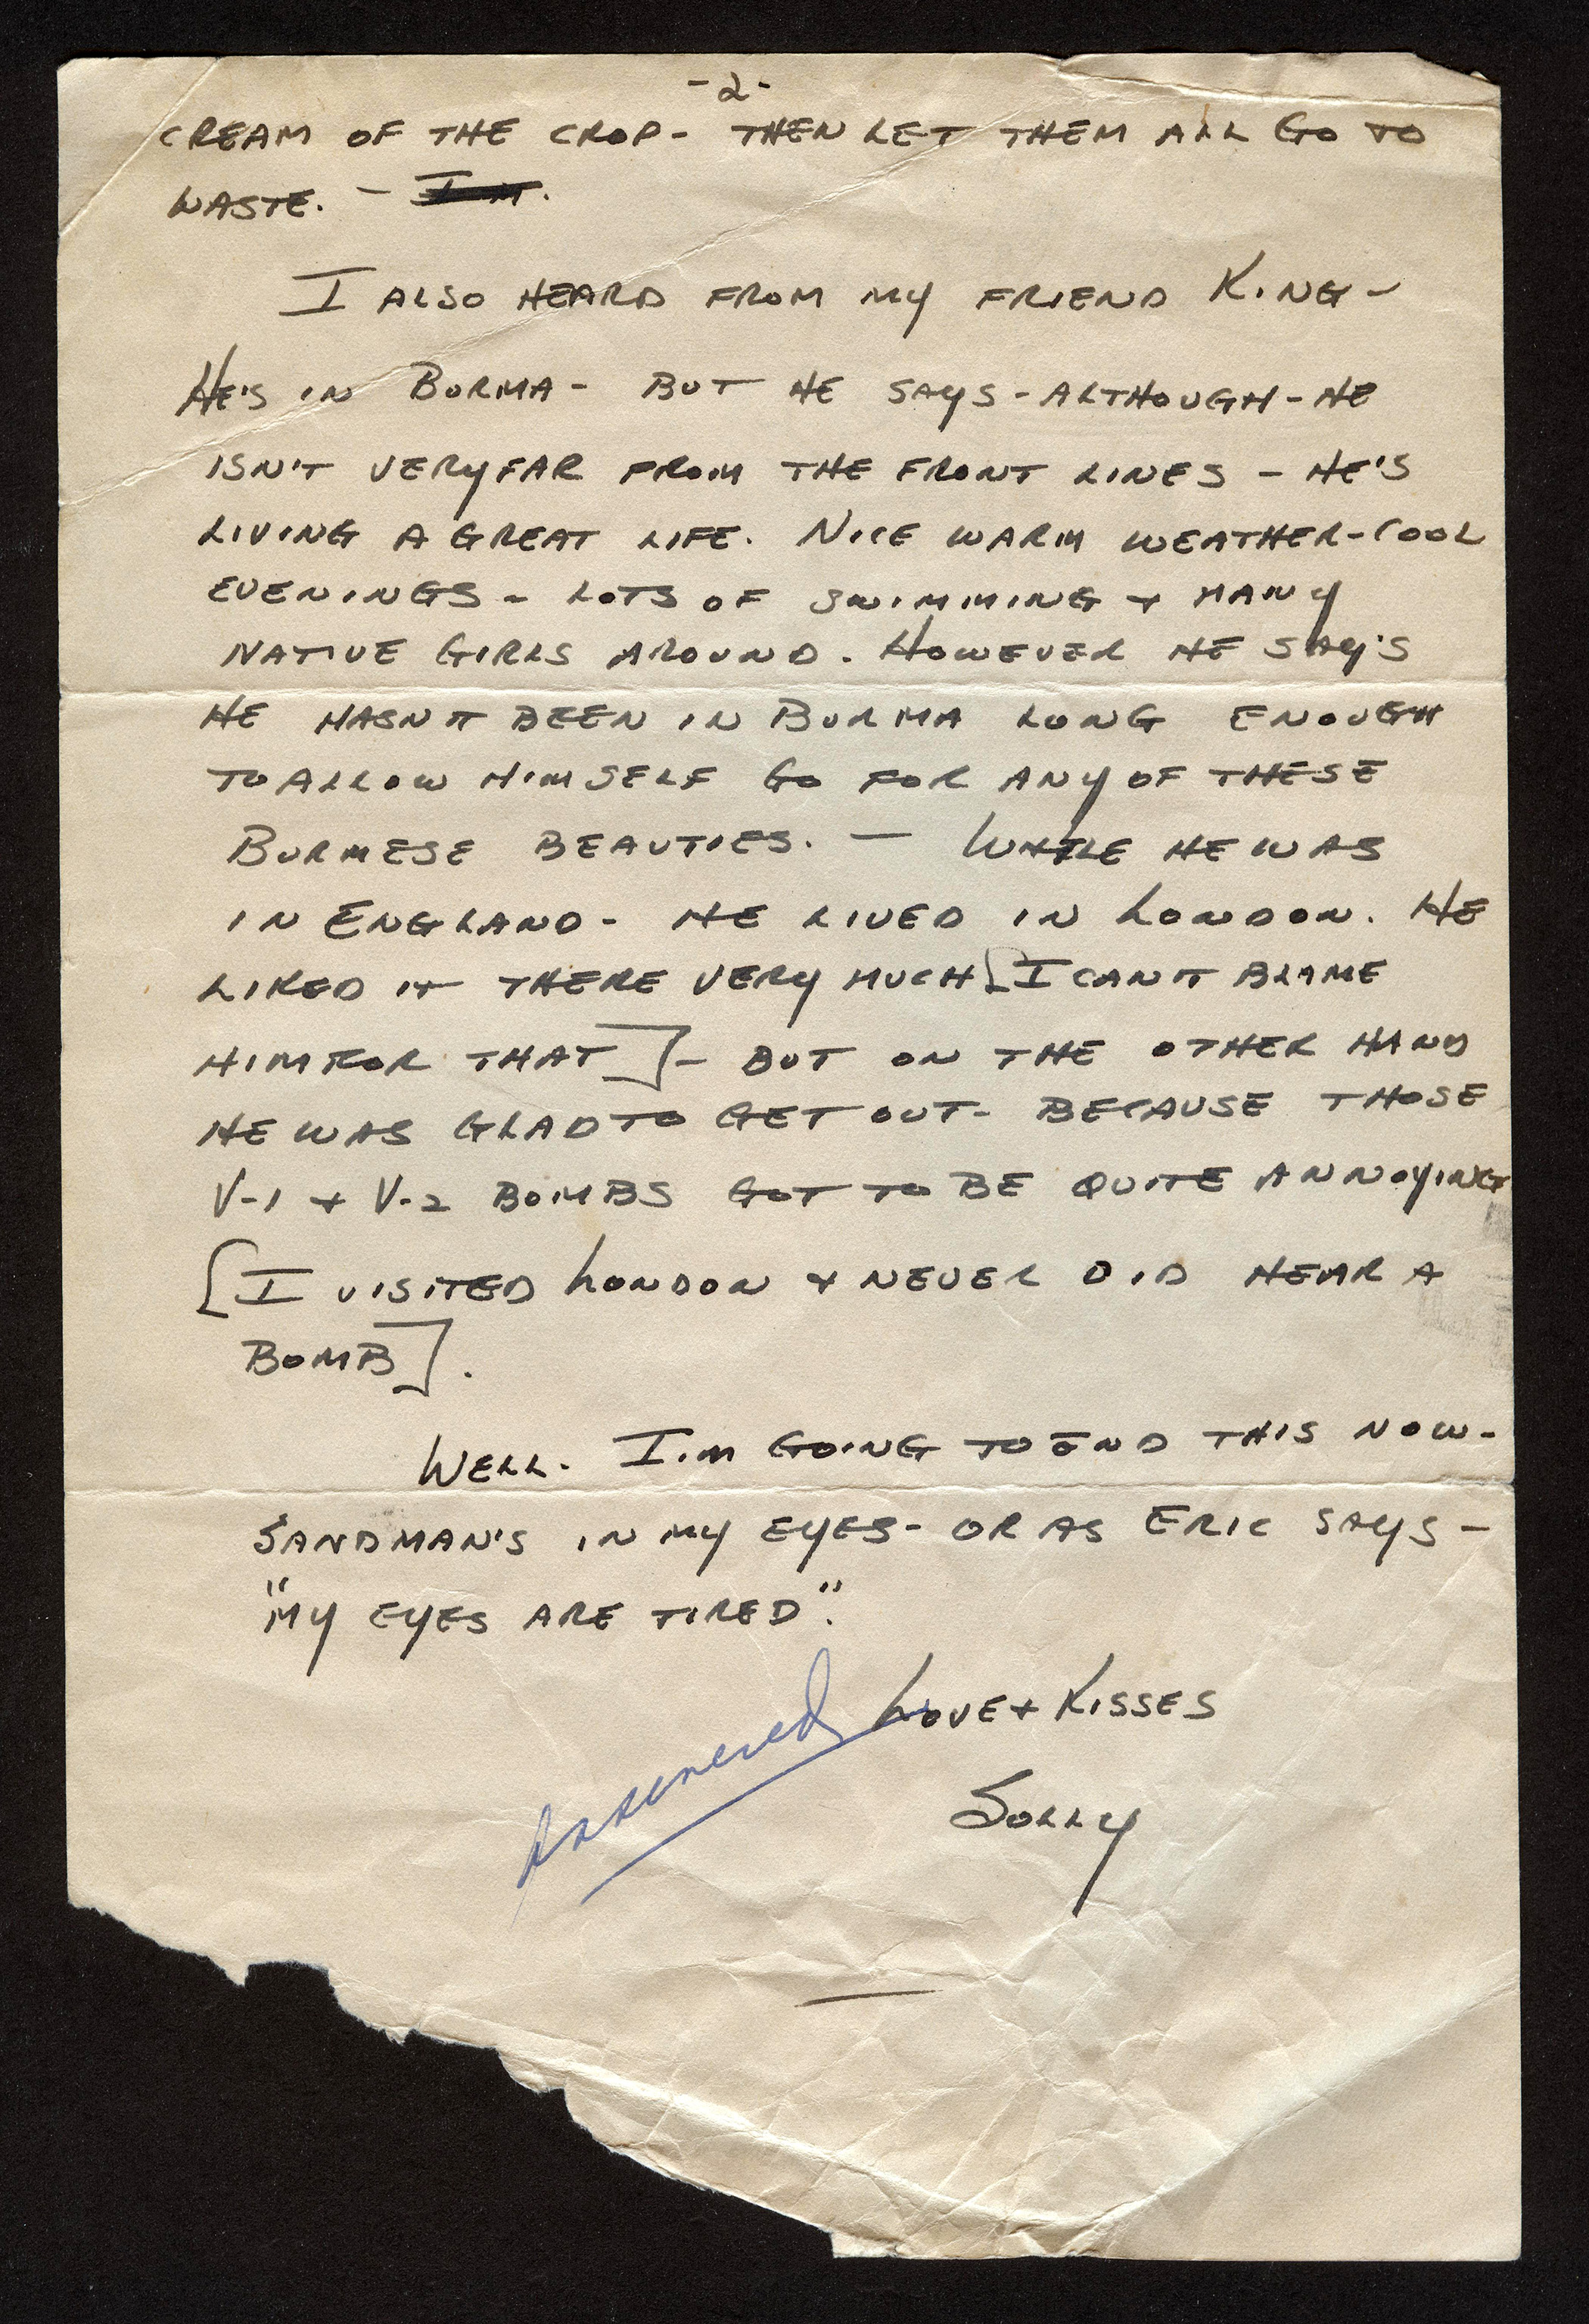 -2-
CREAM OF THE CROP- THEN LET THEM ALL GO TO
WASTE. - I'M.
I ALSO HEARD FROM MY FRIEND KING-
HE'S IN BURMA- BUT HE SAYS-ALTHOUGH-HE
ISN'T VERY FAR FROM THE FRONT LINES - HE'S
LIVING A GREAT LIFE. NICE WARM WEATHER-COOL
EVENINGS - LOTS OF SWIMMING + MANY
NATIVE GIRLS AROUND. HOWEVER HE SAY'S
HE HASN'T BEEN IN BURMA LONG ENOUGH
TO ALLOW HIMSELF GO FOR ANY OF THESE
BURMESE BEAUTIES. - WHILE HE WAS
IN ENGLAND- HE LIVED IN LONDON. HE
LIKED IT THERE VERY MUCH [I CAN'T BLAME
HIM FOR THAT]- BUT ON THE OTHER HAND
HE WAS GLAD TO GET OUT- BECAUSE THOSE
V-1 + V-2 BOMBS GOT TO BE QUITE ANNOYING
[I VISITED LONDON + NEVER DID HEAR A
BOMB].
WELL- I'M GOING TO END THIS NOW-
SANDMAN'S IN MY EYES- OR AS ERIC SAYS-
"MY EYES ARE TIRED".
LOVE + KISSES
Answered
SOLLY